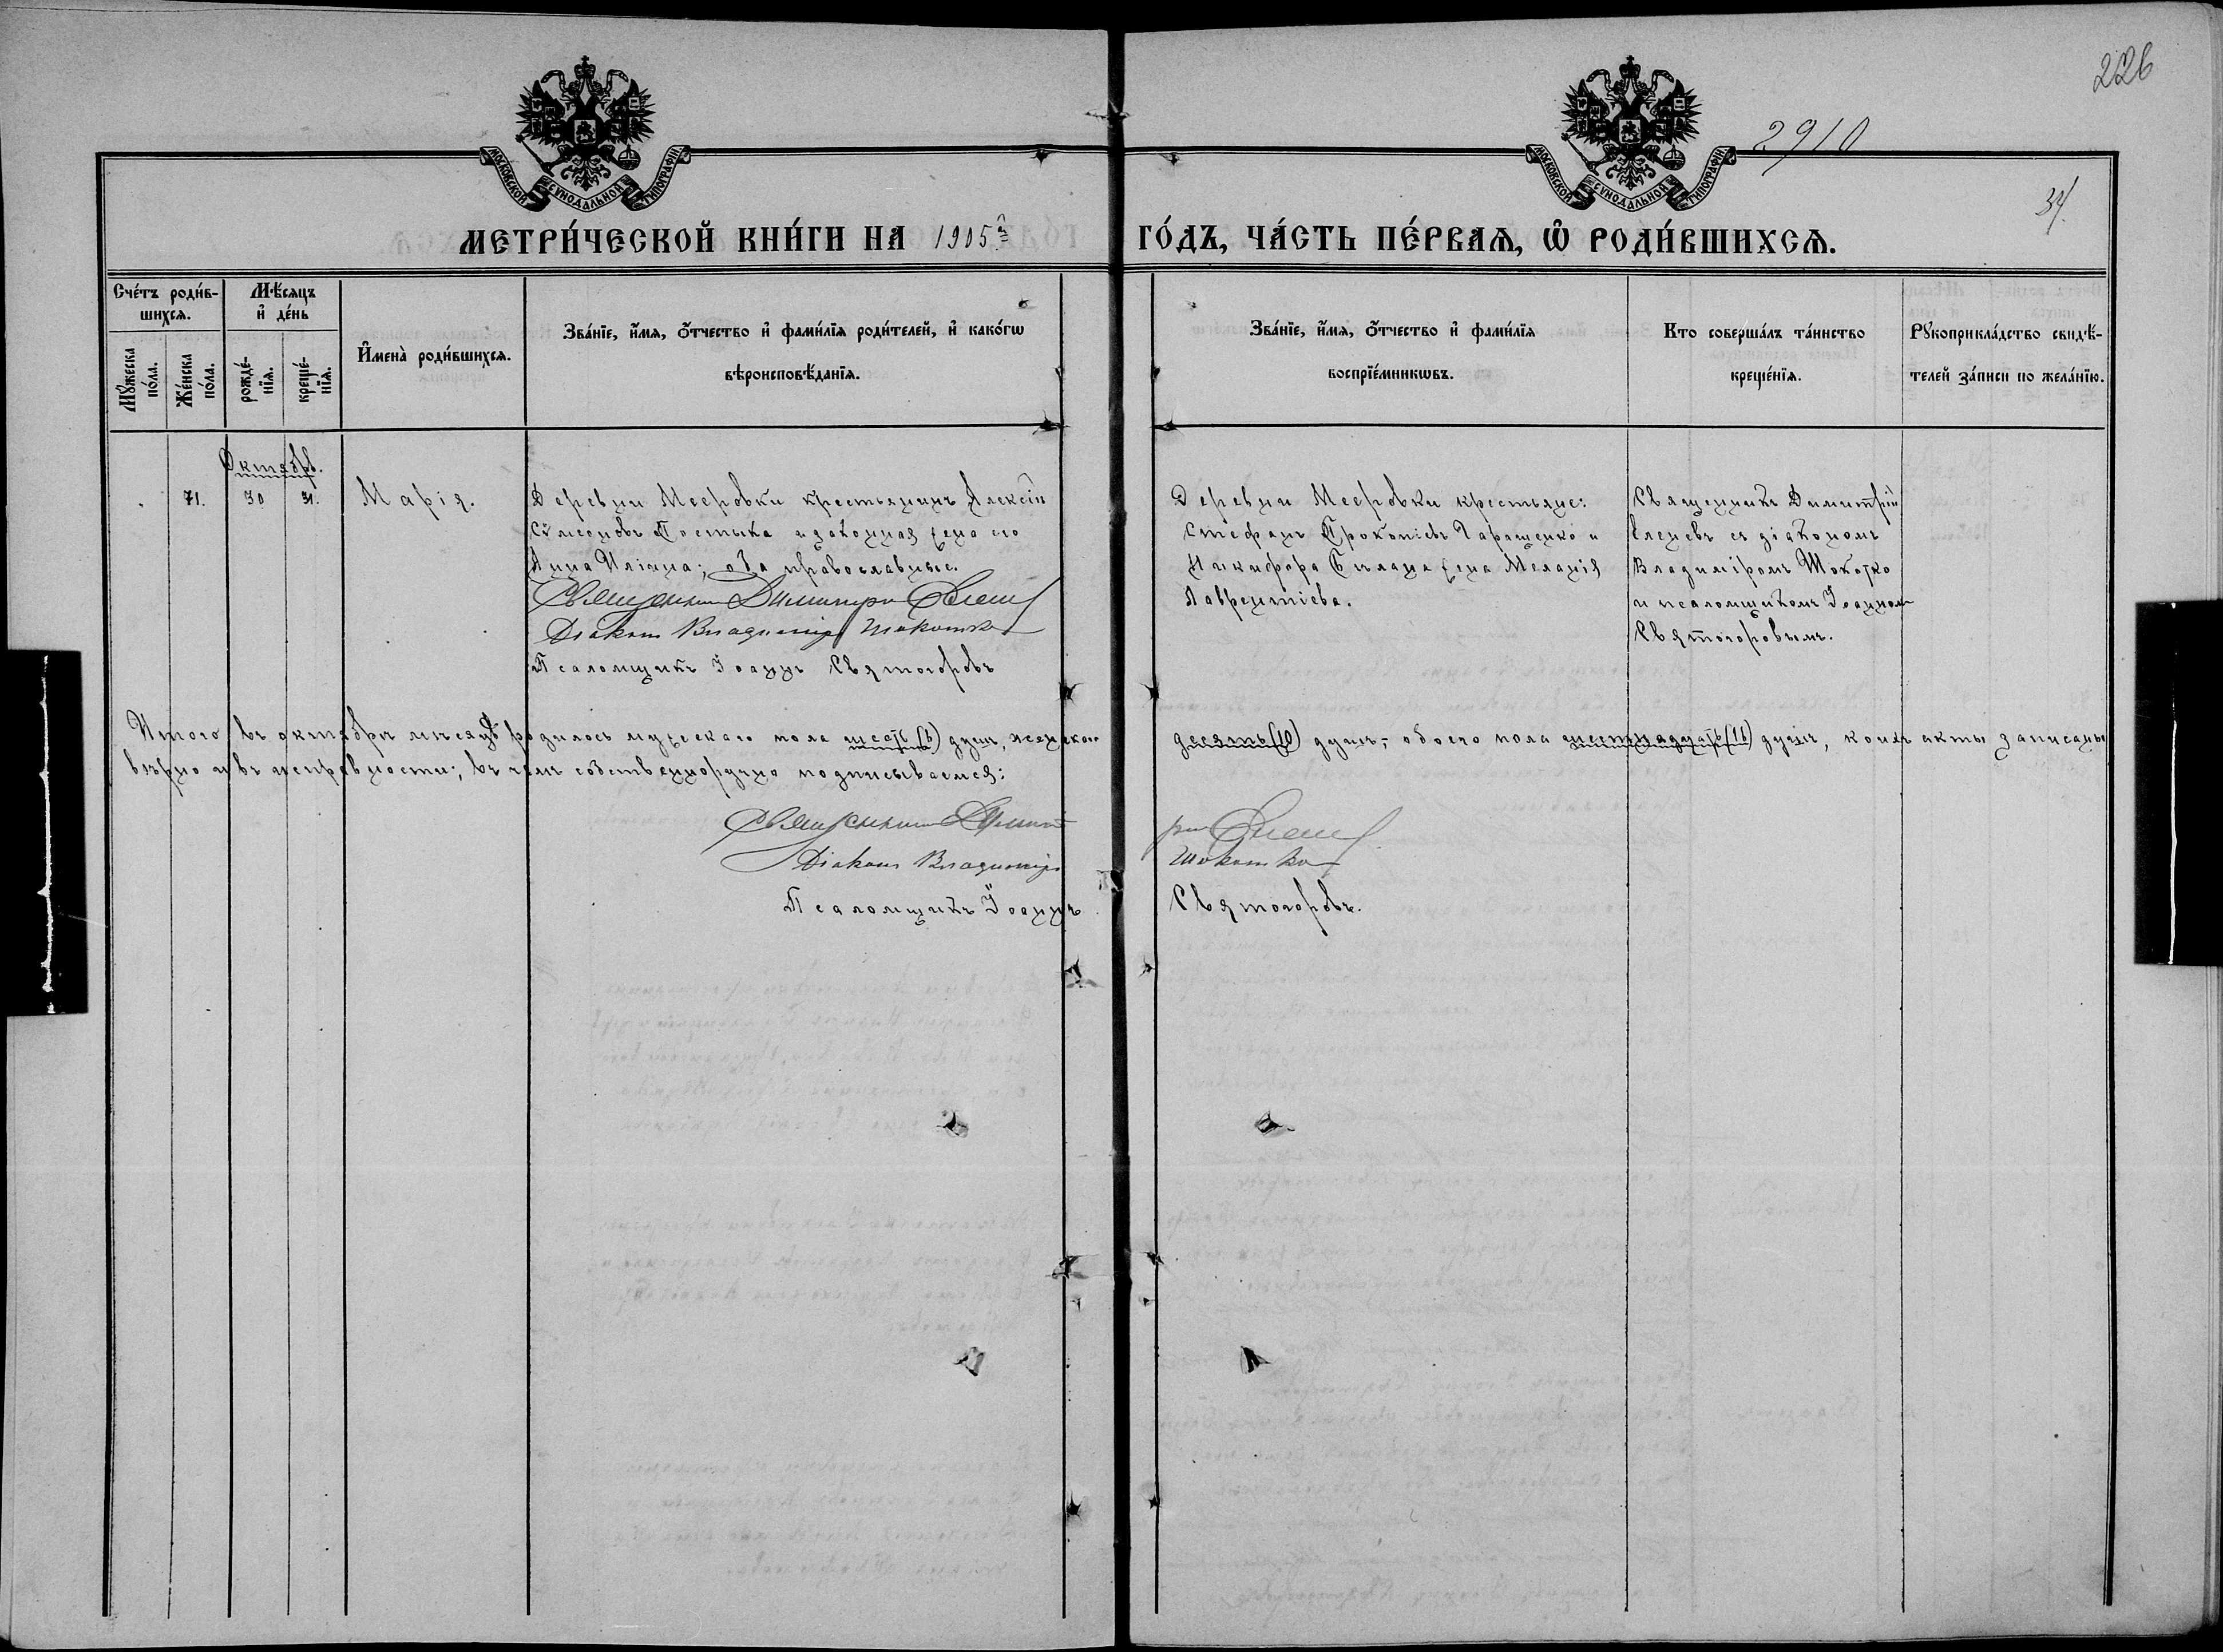 226
2910
34.
МОСКОВСКОЙ СѴНОДАЛЬНОЙ ТИПОГРАФІИ.
МОСКОВСКОЙ СѴНОДАЛЬНОЙ ТИПОГРАФІИ.
МЕТРИ́ЧЕСКОЙ КНИ́ГИ НА 1905й ГО́ДЪ, ЧА́СТЬ ПЕ́РВАѦ, Ѡ҆ РОДИ́ВШИХСѦ.
Сче́тъ роди́в-
шихсѧ.
Мѣ́сѧцъ
и҆ де́нь
Мꙋ́жеска по́ла.
Же́нска по́ла.
рожде́-нїѧ.
креще́-нїѧ.
И҆мена̀ роди́вшихсѧ.
Зва́нїе, и҆́мѧ, ѻ҆́тчество и҆ фами́лїѧ роди́телей, и҆ како́гѡ
вѣроисповѣ́данїѧ.
Зва́нїе, и҆́мѧ, ѻ҆́тчество и҆ фами́лїѧ
воспрїе́мникѡвъ.
Кто соверша́лъ та́инство
креще́нїѧ.
Рꙋкоприкла́дство свидѣ́-
телей за́писи по жела́нїю.
Октябрь.
71. 30 31. Марія.
Деревни Мееровки крестьянинъ Алексій
Сѵмеоновъ Постыка и законная жена его
Анна Иліина; оба православные.
Священникъ Димитрій
Діаконъ Владиміръ Шокотко
Псаломщикъ Іоаннъ Святогоровъ
Деревни Мееровки крестьяне:
Стефанъ Прокопіевъ Гаращенко и
Никифора Билана жена Меланія
Лаврентіева.
Священникъ Димитрій
Еленевъ съ діакономъ
Владиміромъ Шокотко
и псаломщикомъ Іоанномъ
Святогоровымъ.
Итого въ октябрѣ мѣсяцѣ родилось мужескаго пола шесть (6) душъ, женскаго десять (10) душъ,- обоего пола шестнадцать (16) душъ, коихъ акты записаны
вѣрно и въ исправности; въ чемъ собственноручно подписываемся:
Священникъ Димитрій
Діаконъ Владиміръ Шокотко
Псаломщикъ Іоаннъ Святогоровъ.